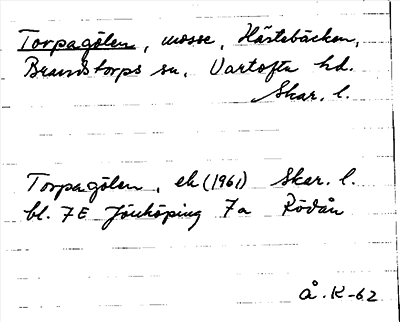 Torpagölen, mosse, Hästebäcken,
Brandstorps sn, Vartofta hd.
Skar. l.
Torpagölen, ek (1961) Skar. l.
bl. 7E Jönköping 7a Rödån
Å. K-62